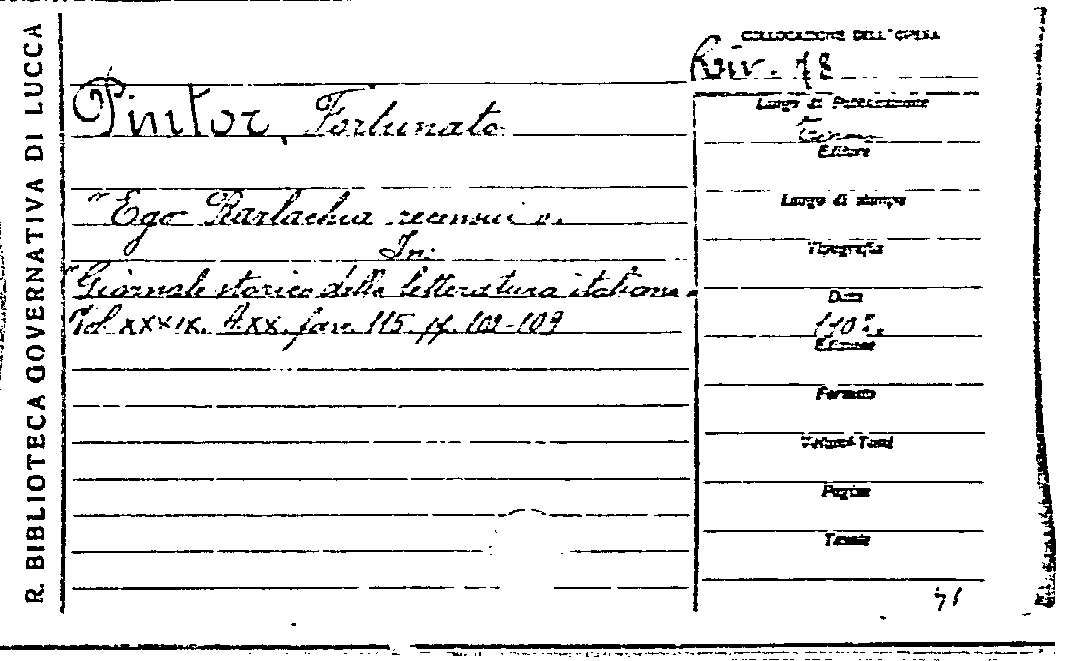 R. BIBLIOTECA GOVERNATIVA DI LUCCA
COLLOCAZIONE DELL'OPERA
Riv. 78
Pintor, Fortunato
"Ego Barlachia recensui".
In:
"Giornale storico della letteratura italiana.
Vol. XXXIX. fasc. 115. pp. 102-109
Luogo di Pubblicazione
Editore
Luogo di stampa
Tipografia
Data
Edizione
Formato
Volumi-Tomi
Pagine
Tavole